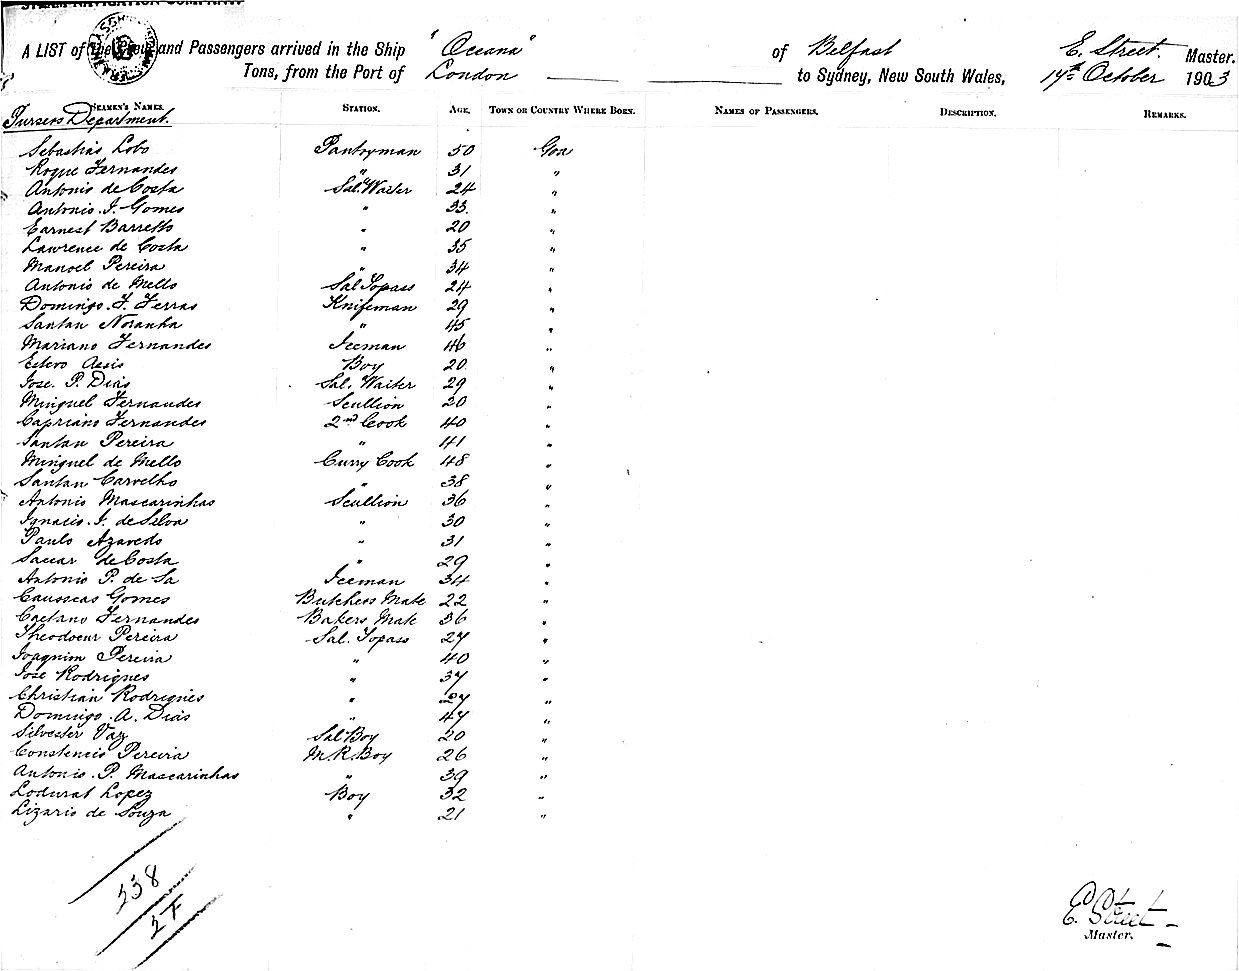 STEAM NAVIGATION COMPANY
A LIST of the Crew and Passengers arrived in the Ship "Oceana" of Belfast E. Street. Master.
Tons, from the Port of London to Sydney, New South Wales, 17th October 1903
SEAMEN'S NAMES. STATION. AGE. TOWN OR COUNTRY WHERE BORN. NAMES OF PASSENGERS. DESCRIPTION. REMARKS.
Pursers Department.
Sebastias Lobo Pantryman 50 Goa
Roque Fernandes " 31 "
Antonio de Costa Sal. Waiter 24 "
Antonio. J. Gomes " 33. "
Earnest Barretto " 20 "
Lawrence de Costa " 35 "
Manoel Pereira " 34 "
Antonio de Mello Sal Topass 24 "
Domingo. F. Ferras Knifeman 29 "
Santan Noranha " 45 "
Mariano Fernandes Iceman 46 "
Estevo Assis Boy 20. "
Jose. P. Dias Sal. Waiter 29 "
Minguel Fernandes Scullion 20 "
Capriano Fernandes 2nd Cook 40 "
Santan Pereira " 41 "
Minguel de Mello Curry Cook 48 "
Santan Carvelho " 38 "
Antonio Mascarinhas Scullion 36 "
Ignacio. J. de Silva " 30 "
Paulo Azavedo " 31 "
Saccar de Costa " 29 "
Antonio P. de Sa Iceman 34 "
Gomes Butchers Mate 22 "
Caetano Fernandes Bakers Mate 36 "
Theodoeur Pereira Sal. Topass 27 "
Joaquim Pereira " 40 "
Jose Rodrigues " 37 "
Christian Rodrigues " 27 "
Domingo. A. Dias " 47 "
Silvester Vaz Sal Boy 20 "
Constencio Pereira M.R. Boy 26 "
Antonio. P. Mascarinhas " 39 "
Lopez Boy 32 "
Lizario de Souza " 21 "
238
27
E. Street
Master.